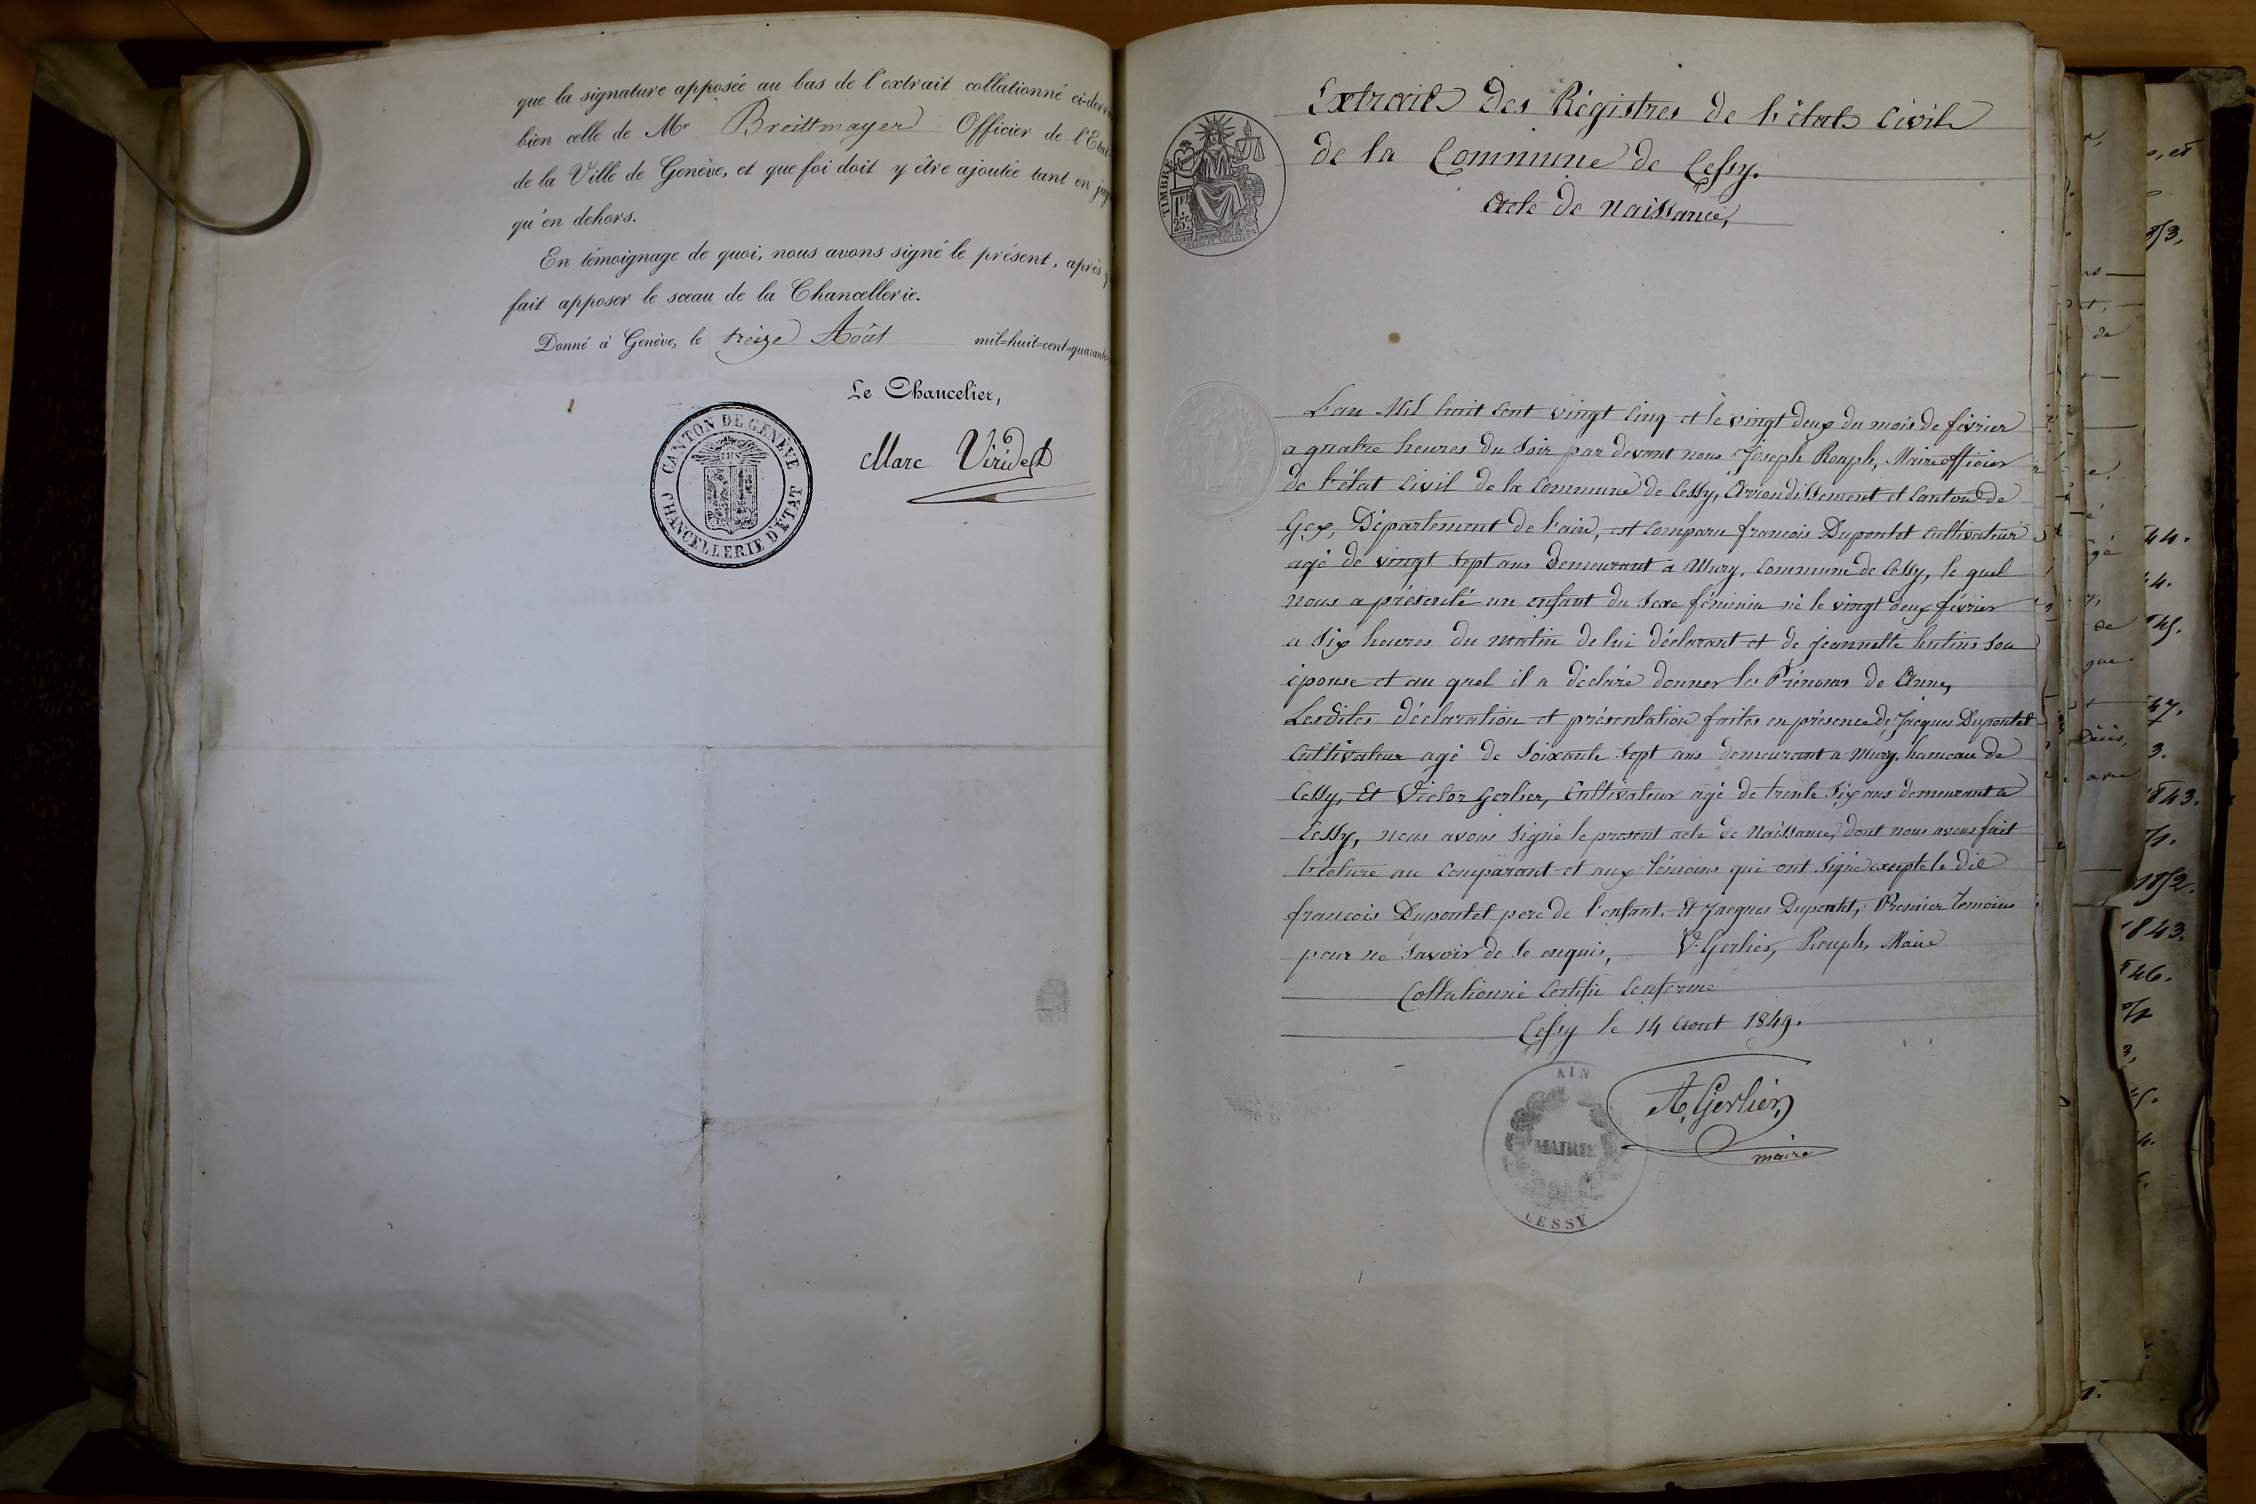 que la signature apposée au bas de l'extrait collationné
bien celle de Mr Breittmayer Officier de l'Etat
de la Ville de Genève, et que foi doit y être ajoutée tant en
qu'en dehors.
En témoignage de quoi, nous avons signé le présent, après
fait apposer le sceau de la Chancellerie.
Donné à Genève, le treize Août mil=huit=cent=quarante
Le Chancelier,
Marc Viridet
CANTON DE GENÈVE
CHANCELLERIE D'ÉTAT
Extrait Des Régistres de l'état Civil
de la Commune de Cessy.
Acte de Naissance,
TIMBRE
1F
25c
L'an Mil huit Cent vingt Cinq et le vingt deux du mois de février
a quatre heures du Soir par devant nous Joseph Rouph, Maire officier
de l'état Civil de la Commune de Cessy, Arrondissement et Canton de
Gex, Département de l'ain, est Comparu francois Dupontet Cultivateur
agé de vingt Sept ans Demeurant a Mury, Commune de Cessy, le quel
nous a présenté un enfant du Sexe féminin né le vingt deux février
a Six heures du matin de lui déclarant et de Jeannette hutins Son
épouse et au quel il a déclaré donner les Prénoms de Anne,
Lesdites déclaration et présentation faites en présence de Jacques Dupontet
Cultivateur agé de Soixante Sept ans demeurant a Mury, hameau de
Cessy, Et Victor Gerlier, Cultivateur agé de trente Six ans demeurant a
Cessy, nous avons Signé le present acte de Naissance, dont nous avons fait
lecture au Comparant et aux témoins qui ont Signé excepté le dit
francois Dupontet pere de l'enfant, Et Jacques Dupontet, Premier temoins
pour ne Savoir de ce enquis, V. Gerlier, Rouph, Maire
Collationné Certifié Conforme
Cessy le 14 Aout 1849.
A. Gerlier,
maire
AIN
MAIRIE
CESSY